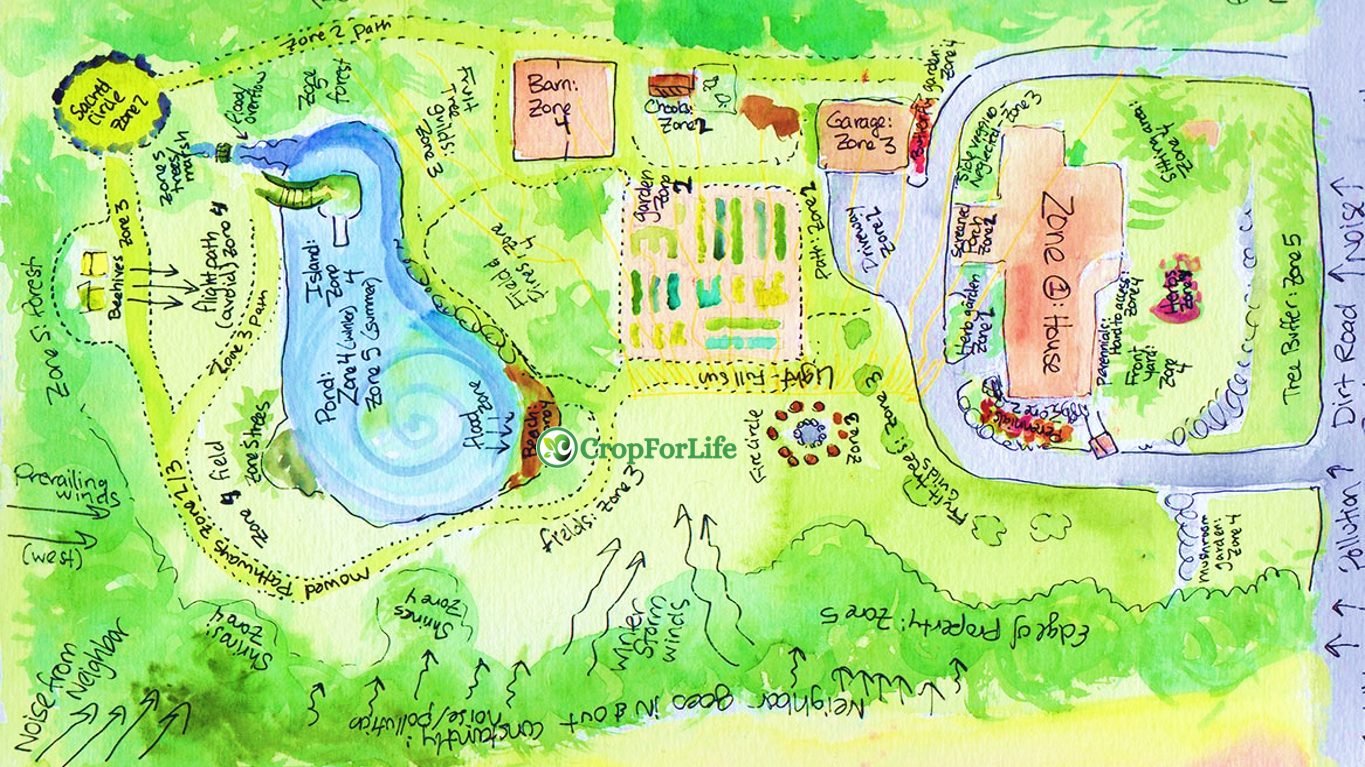 Zone 2 Path
Sacred
Circle
Zone 2
Pond
overflow
Zone
5
forest
Fruit
Tree guilds:
Zone 3
Barn:
Zone
4
Zone 2
Garage:
Zone 3
Butterfly garden
Zone 4
Neglected - Zone 3
Sitting area:
Zone 4
Zone 5
trees/
marsh
Beehives
Zone 3
flight path
(avoid)
Zone 5 forest
Zone 3 Path
Island:
Zone
4
Pond:
Zone 4 (winter)
Zone 5 (summer)
Field &
Vines, Zone
4
garden
Zone
2
Path: Zone 2
Driveway
Zone 2
Screened
Porch
Zone 2
Zone 1: House
Herb garden
Perennials:
Hard to access:
Zone 4
Front
yard:
Zone
4
Herbs
Tree Buffer: Zone 5
Dirt Road
Noise
Pollution
Light - Full sun
flood
Zone
Beach
CropForLife
Fire circle
Zone 3
Fruit trees: Zone 3
Guilds
Perennials
Zone 2
field
Zone 5 trees
Mowed Pathways Zone 2/3
fields: Zone 3
Prevailing
winds
(west)
mushroom
garden:
Zone 4
Shrines
Zone 4
Shrines:
Zone 4
Winter
Storm
winds
Edge of Property: Zone 5
Noise from
Neighbor
Neighbor goes in & out
constantly:
noise/pollution